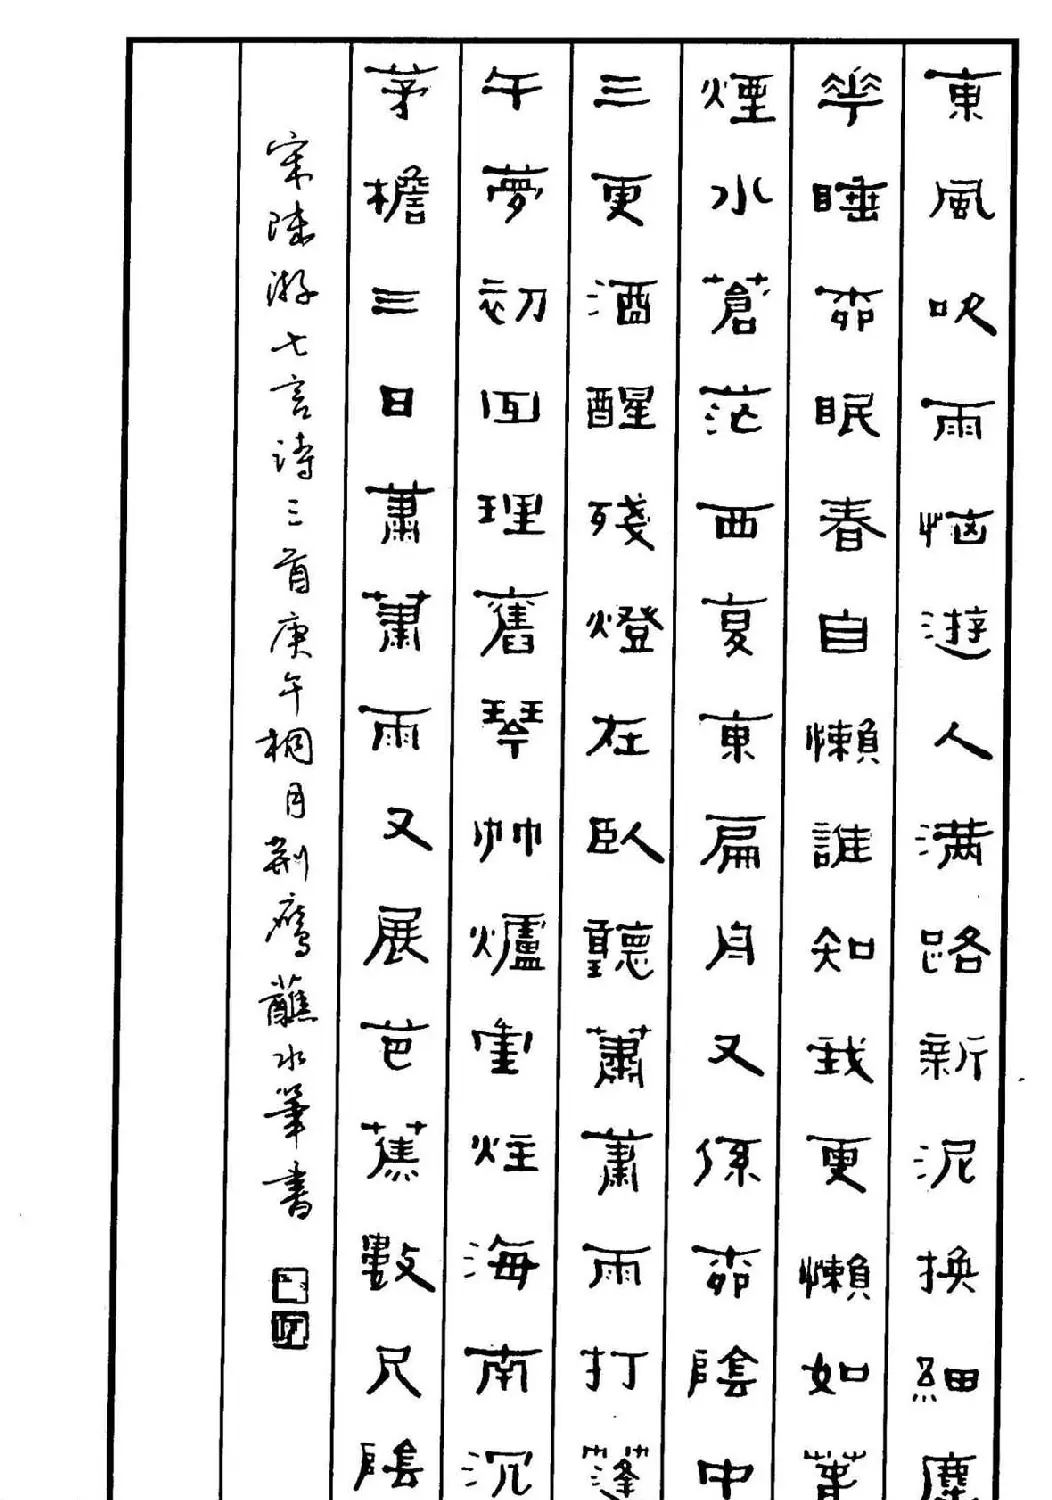 東風吹雨惱遊人滿路新泥換細塵
華睡柳眠春自懶誰知我更懶如春
煙水蒼茫西复東扁舟又係柳陰中
三更酒醒殘燈在臥聽蕭蕭雨打蓬
午夢初回理舊琴竹爐重炷海南沉
茅檐三日蕭蕭雨又展芭蕉數尺陰
宋陸游七言詩三首庚午桐月荆鹰蘸水筆書